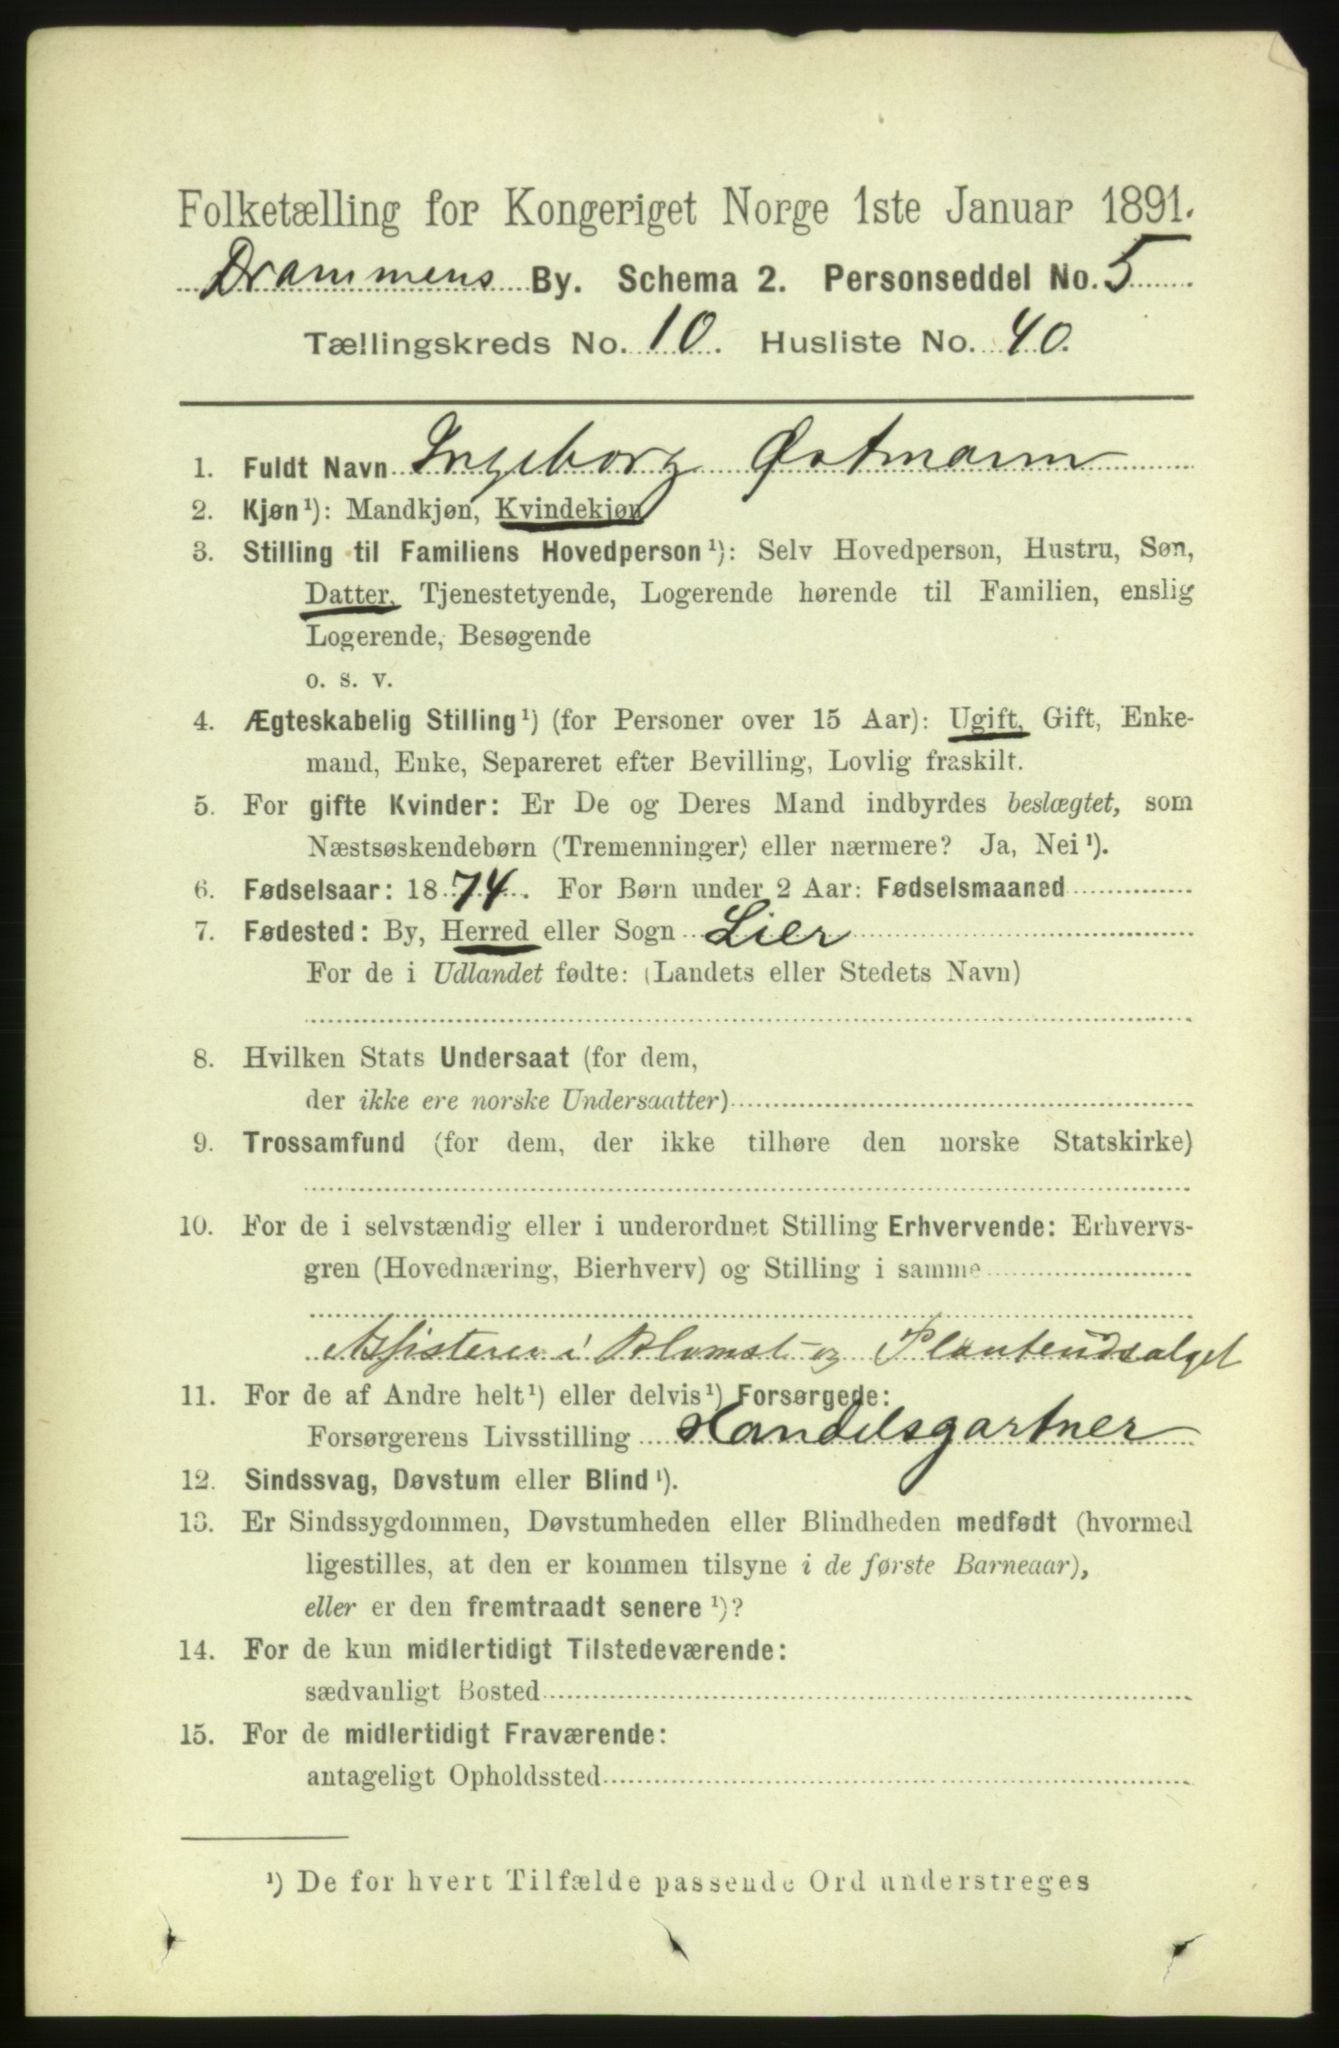 Folketælling for Kongeriget Norge 1ste Januar 1891.
Drammens By. Schema 2. Personseddel No. 5
Tællingskreds No. 10. Husliste No. 40.
1. Fuldt Navn Ingeborg Østmann
2. Kjøn¹): Mandkjøn, Kvindekjøn
3. Stilling til Familiens Hovedperson¹): Selv Hovedperson, Hustru, Søn,
Datter, Tjenestetyende, Logerende hørende til Familien, enslig
Logerende, Besøgende
o. s. v.
4. Ægteskabelig Stilling¹) (for Personer over 15 Aar): Ugift, Gift, Enke-
mand, Enke, Separeret efter Bevilling, Lovlig fraskilt.
5. For gifte Kvinder: Er De og Deres Mand indbyrdes beslægtet, som
Næstsøskendebørn (Tremenninger) eller nærmere? Ja, Nei¹).
6. Fødselsaar: 1874. For Børn under 2 Aar: Fødselsmaaned
7. Fødested: By, Herred eller Sogn Lier
For de i Udlandet fødte: (Landets eller Stedets Navn)
8. Hvilken Stats Undersaat (for dem,
der ikke ere norske Undersaatter)
9. Trossamfund (for dem, der ikke tilhøre den norske Statskirke)
10. For de i selvstændig eller i underordnet Stilling Erhvervende: Erhvervs-
gren (Hovednæring, Bierhverv) og Stilling i samme
Assisterer i Blomst- og Planteudsalget
11. For de af Andre helt¹) eller delvis¹) Forsørgede:
Forsørgerens Livsstilling Handelsgartner
12. Sindssvag, Døvstum eller Blind¹).
13. Er Sindssygdommen, Døvstumheden eller Blindheden medfødt (hvormed
ligestilles, at den er kommen tilsyne i de første Barneaar),
eller er den fremtraadt senere¹)?
14. For de kun midlertidigt Tilstedeværende:
sædvanligt Bosted
15. For de midlertidigt Fraværende:
antageligt Opholdssted
¹) De for hvert Tilfælde passende Ord understreges